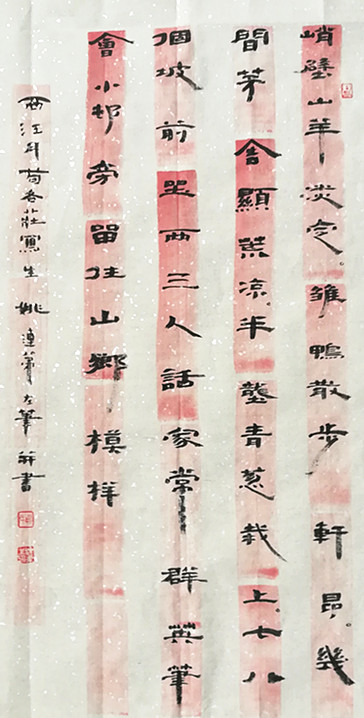 峭壁山羊淡定。雛鴨散步軒昂。幾
間茅舍顯荒凉。半壟青葱栽上。七八
個坡前坐兩三人話家常群英筆
會小邨旁留住山鄉模樣
西江月荀各莊寫生姚連第左筆并書